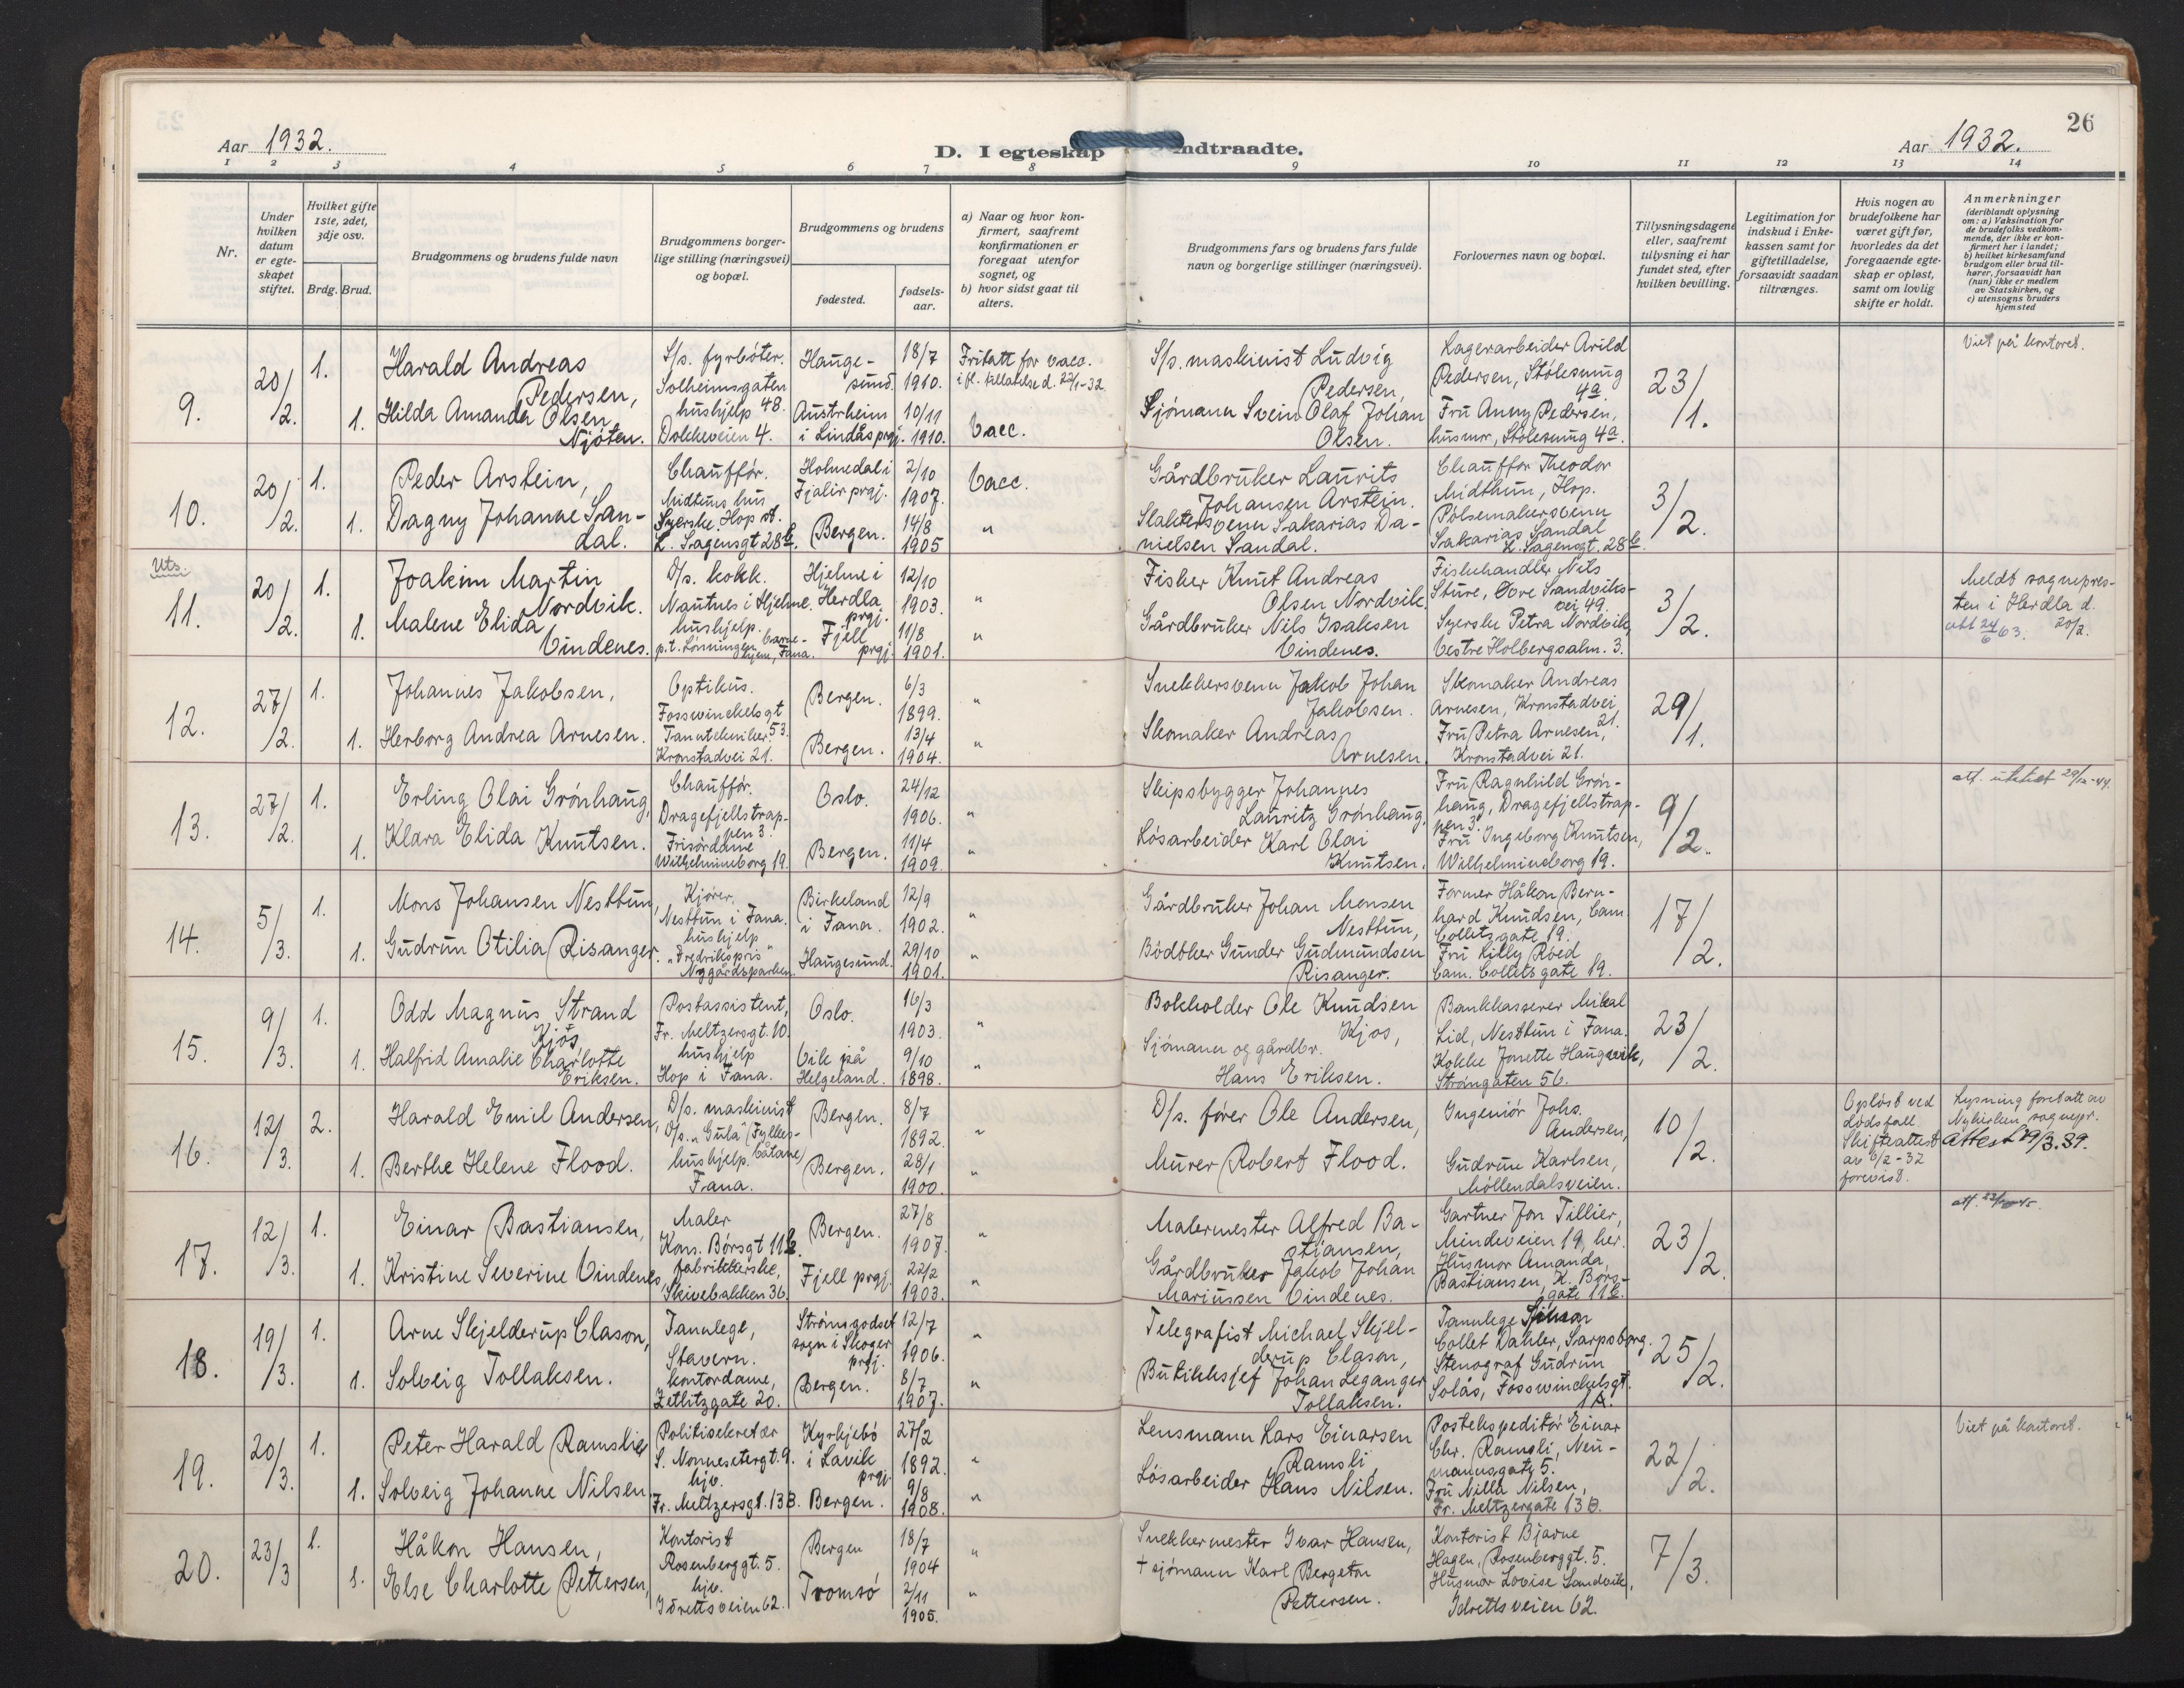 26
Aar 1932.
D. I egteskap indtraadte.
Aar 1932.
1 2 3 4 5 6 7 8 9 10 11 12 13 14
Nr.
Under hvilken datum er egte-skapet stiftet.
Hvilket gifte 1ste, 2det, 3dje osv.
Brdg. Brud.
Brudgommens og brudens fulde navn
Brudgommens borger-lige stilling (næringsvei) og bopæl.
Brudgommens og brudens
fødested.
fødsels-aar.
a) Naar og hvor kon-firmert, saafremt konfirmationen er foregaat utenfor sognet, og
b) hvor sidst gaat til alters.
Brudgommens fars og brudens fars fulde navn og borgerlige stillinger (næringsvei).
Forlovernes navn og bopæl.
Tillysningsdagene eller, saafremt tillysning ei har fundet sted, efter hvilken bevilling.
Legitimation for indskud i Enke-kassen samt for giftetilladelse, forsaavidt saadan tiltrænges.
Hvis nogen av brudefolkene har været gift før, hvorledes da det foregaaende egte-skap er opløst, samt om lovlig skifte er holdt.
Anmerkninger
(deriblandt oplysning om: a) Vaksination for de brudefolks vedkom-mende, der ikke er kon-firmert her i landet; b) hvilket kirkesamfund brudgom eller brud til-hører, forsaavidt han (hun) ikke er medlem av Statskirken, og c) utensogns bruders hjemsted
9. 20/2. 1. Harald Andreas Pedersen, S/s. fyrbøter. Solheimsgaten 48. Haugesund. 18/7 1910. Fritatt for vacc. i fl. tillatelse d. 22/1-32 S/s. maskinist Ludvig Pedersen, Lagerarbeider Arild Pedersen, Stølesmug 4a. 23/1. Viet på kontoret.
1. Hilda Amanda Olsen Njøten. hushjelp Dokkeveien 4. Austrheim i Lindås prgj. 10/11 1910. Vacc. Sjømann Svein Olaf Johan Olsen. Fru Anny Pedersen, husmor, Stølesmug 4a.
10. 20/2. 1. Peder Arstein, Chauffør. Midttuns hus Hop st. Holmedal i Fjaler prgj. 2/10 1907. Vacc. Gårdbruker Laurits Johansen Arstein. Chauffør Theodor Midthun, Hop. 3/2.
1. Dagny Johanne San-dal. Syerske. L. Sagensgt 28b. Bergen. 14/8 1905 " Slaktersvenn Sakarias Da-nielsen Sandal. Pølsemakersvenn Sakarias Sandal L. Sagensgt. 28b.
Uts.
11. 20/2. 1. Joakim Martin Nordvik. D/s. kokk. Nautnes i Hjelme. Hjelme i Herdla prgj. 12/10 1903. " Fisker Knut Andreas Olsen Nordvik. Fiskehandler Nils Sture, Øvre Sandviks-vei 49. 3/2. Meldt sognepres-ten i Herdla d. 20/2.
1. Malene Elida Vindenes. hushjelp. p.t. Lønningen barne-hjem, Fana. Fjell prgj. 11/8 1901. " Gårdbruker Nils Isaksen Vindenes. Syerske Petra Nordvik, Vestre Holbergsalm. 3. att 24/6 63.
12. 27/2. 1. Johannes Jakobsen, Optikus. Fosswinckelsgt 53. Bergen. 6/3 1899. " Snekkersvenn Jakob Johan Jakobsen. Skomaker Andreas Arnesen, Kronstadvei 21. 29/1.
1. Herborg Andrea Arnesen. Tanntekniker Kronstadvei 21. Bergen. 13/4 1904. " Skomaker Andreas Arnesen. Fru Petra Arnesen, Kronstadvei 21.
13. 27/2. 1. Erling Olai Grønhaug, Chauffør. Dragefjellstrap-pen 3. Oslo. 24/12 1906. " Skipsbygger Johannes Lauritz Grønhaug, Fru Ragnhild Grøn-haug, Dragefjellstrap-pen 3. 9/2. att. utstedt 29/12-44.
1. Klara Elida Knutsen. Frisørdame Wilhelmineborg 19. Bergen. 11/4 1909. " Løsarbeider Karl Olai Knutsen. Fru Ingeborg Knutsen, Wilhelmineborg 19.
14. 5/3. 1. Mons Johansen Nesttun, Kjører. Nesttun i Fana. Birkeland i Fana. 12/9 1902. " Gårdbruker Johan Monsen Nesttun, Former Håkon Bern-hard Knudsen, Cam. Colletsgate 19. 17/2.
1. Gudrun Otilia Risanger. hushjelp "Fredrikspris" Nygårdsparken. Haugesund. 29/10 1901. " Bødkker Gunder Gudmundsen Risanger. Fru Lilly Røed Cam. Collets gate 19.
15. 9/3. 1. Odd Magnus Strand Kjøs, Postassistent, Fr. Meltzersgt. 10. Oslo. 16/3 1903. " Bokholder Ole Knudsen Kjos, Bankkasserer Mikal Lid, Nesttun i Fana. 23/2.
1. Halfrid Amalie Charlotte Eriksen. hushjelp Hop i Fana. Vik på Helgeland. 9/10 1898. " Sjømann og gårdbr. Hans Eriksen. Kokke Jonette Haugsvik, Strømgaten 56.
16. 12/3. 2. Harald Emil Andersen, D/s. maskinist D/s. "Gula" (Fylkes-båtane) Bergen. 8/7 1892. " D/s. fører Ole Andersen, Ingeniør Johs. Andersen, 10/2. Opløst ved dødsfall Skifteattest av 6/2-32 forevist. Lysning foretatt av Nykirken sognepr. Attest 29/3.39.
1. Berthe Helene Flood. hushjelp. Fana. Bergen. 28/1 1900. " Murer Robert Flood. Gudrun Karlsen, Møllendalsveien.
17. 12/3. 1. Einar Bastiansen, Maler Kons. Børsgt 11b. Bergen. 27/8 1907. " Malermester Alfred Ba-stiansen, Gartner Jon Tillier, Mindeveien 19, her. 23/2.
1. Kristine Severine Vindenes, fabrikkerske, Skivebakken 36. Fjell prgj. 22/2 1903. " Gårdbruker Jakob Johan Mariussen Vindenes. Husmor Amanda, Bastiansen, K. Børs-gate 11b.
18. 19/3. 1. Arne Skjelderup Clason, Tannlege, Stavern. Strømsgodset sogn i Skoger prgj. 12/7 1906. " Telegrafist Michael Skjel-derup Clason, Tannlege Collet Dahler, Sarpsborg. 25/2.
1. Solveig Tollaksen. kontordame, Zetlitzgate 20. Bergen. 8/7 1907. " Butikksjef Johan Leganger Tollaksen. Stenograf Gudrun Solås, Fosswinckelsgt.
19. 20/3. 1. Peter Harald Ramslie Politisekretær S. Nonnesetergt. 9. Kyrkjebø i Lavik prgj. 27/2 1892. " Lensmann Lars Einarsen Ramsli, Postekspeditør Einar Chr. Ramsli, Neu-mannsgate 5. 22/2. Viet på kontoret.
1. Solveig Johanne Nilsen. hjv. Fr. Meltzersgt. 13B. Bergen. 9/8 1908. " Løsarbeider Hans Nilsen. Fru Nilla Nilsen, Fr. Meltzergate 13B.
20. 23/3 1. Håkon Hansen, Kontorist Rosenberggt. 5. Bergen 18/7 1904 " Snekkermester Ivar Hansen, Kontorist Bjarne Hagen, Rosenberggt. 5. 7/3.
1. Else Charlotte Pettersen, hjv. Idrettsveien 62. Tromsø 2/11 1905. " + sjømann Karl Bergeton Pettersen. Husmor Lovise Sandvik, Idrettsveien 62.